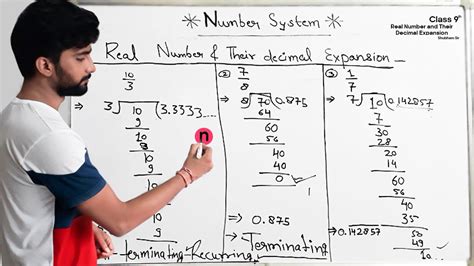 * Number System *
Class 9th
Real Number and Their
Decimal Expansion
Shubham Sir
Real Number & Their decimal Expansion
10/3
3 √10 (3.3333....
9
10
9
10
9
10
n
② 7/8
8 √70 (0.875
64
60
56
40
40
0
1
⇒ 0.875
→ Terminating
③ 1/7
7 √10 (0.142857
7
30
28
20
14
60
56
40
35
50
49
10
0.142857
-terminating-Recurring